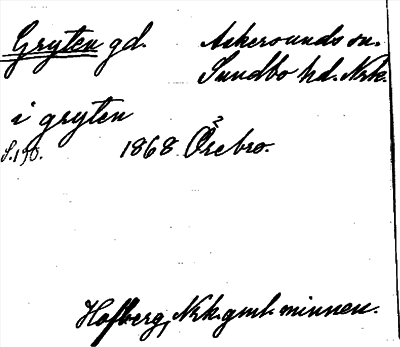 Gryten gd. Askersunds sn.
Sundbo hd. Nrk.
i gryten
S. 190. 1868 Örebro.²
Hofberg, Nrk. gml. minnen.